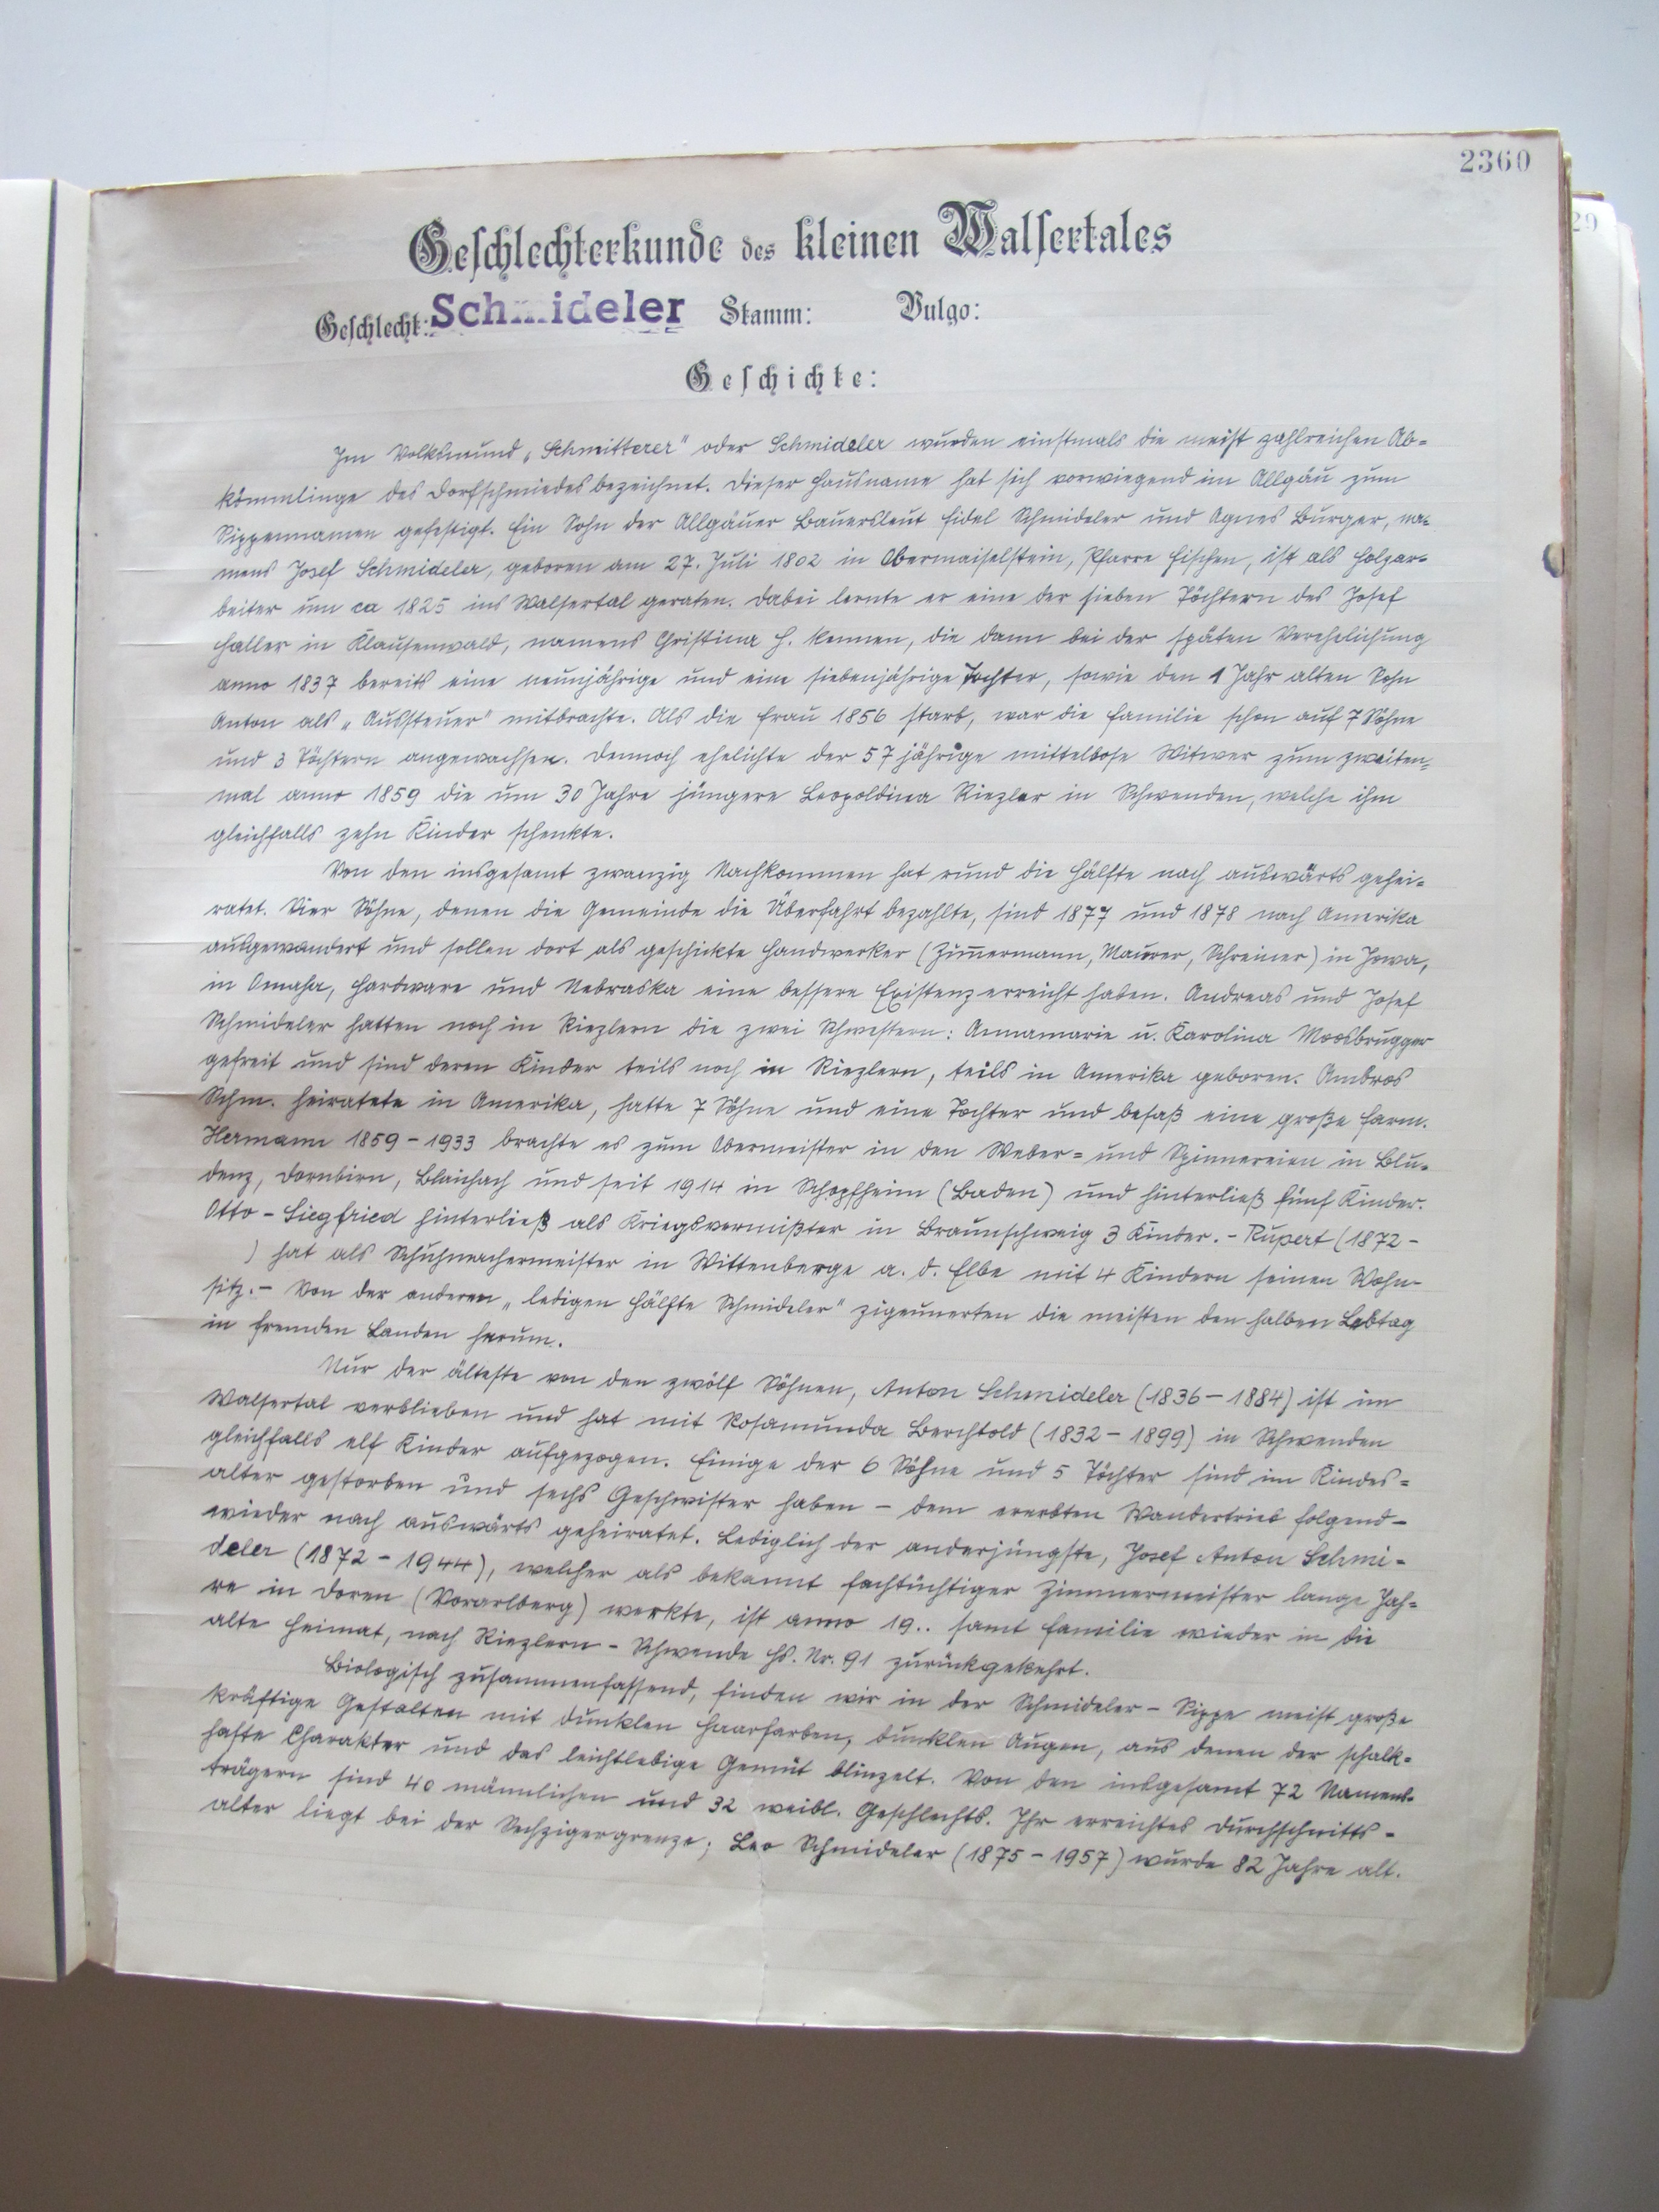 2360
29
Geschlechterkunde des kleinen Walsertales
Geschlecht: Schmideler Stamm: Vulgo:
Geschichte:
Im Volksmund „Schmitterer" oder Schmideler wurden einstmals die meist zahlreichen Ab=
kömmlinge des Dorfschmiedes bezeichnet. Dieser Hausname hat sich vorwiegend im Allgäu zum
Sippennamen gefestigt. Ein Sohn der Allgäuer Bauersleut Fidel Schmideler und Agnes Burger, na=
mens Josef Schmideler, geboren am 27. Juli 1802 in Obermaiselstein, Pfarre Fischen, ist als Holzar=
beiter um ca 1825 ins Walsertal geraten. Dabei lernte er eine der sieben Töchtern des Josef
Haller in Klausenwald, namens Christina H. kennen, die dann bei der späten Verehelichung
anno 1837 bereits eine neunjährige und eine siebenjährige Tochter, sowie den 1 Jahr alten Sohn
Anton als „Aussteuer" mitbrachte. Als die Frau 1856 starb, war die Familie schon auf 7 Söhne
und 3 Töchtern angewachsen. Dennoch ehelichte der 57 jährige mittellose Witwer zum zweiten=
mal anno 1859 die um 30 Jahre jüngere Leopoldina Riezler in Schwenden, welche ihm
gleichfalls zehn Kinder schenkte.
Von den insgesamt zwanzig Nachkommen hat rund die Hälfte nach auswärts gehei=
ratet. Vier Söhne, denen die Gemeinde die Überfahrt bezahlte, sind 1877 und 1878 nach Amerika
ausgewandert und sollen dort als geschickte Handwerker (Zim̄ermann, Maurer, Schreiner) in Jowa,
in Omaha, Hardware und Nebraska eine bessere Existenz erreicht haben. Andreas und Josef
Schmideler hatten noch in Riezlern die zwei Schwestern: Annamarie u. Karolina Moosbrugger
gefreit und sind deren Kinder teils noch in Riezlern, teils in Amerika geboren. Ambros
Schm. heiratete in Amerika, hatte 7 Söhne und eine Tochter und besaß eine große Farm.
Hermann 1859-1933 brachte es zum Obermeister in den Weber= und Spinnereien in Blu=
denz, Dornbirn, Blaichach und seit 1914 in Schopfheim (Baden) und hinterließ fünf Kinder.
Otto-Siegfried hinterließ als Kriegsvermißter in Braunschweig 3 Kinder. - Rupert (1872-
) hat als Schuhmachermeister in Wittenberge a. d. Elbe mit 4 Kindern seinen Wohn-
sitz. - Von der anderen „ledigen Hälfte Schmideler" zigeunerten die meisten den halben Lebtag
in fremden Landen herum.
Nur der älteste von den zwölf Söhnen, Anton Schmideler (1836-1884) ist im
Walsertal verblieben und hat mit Rosamunda Berchtold (1832-1899) in Schwenden
gleichfalls elf Kinder aufgezogen. Einige der 6 Söhne und 5 Töchter sind im Kindes=
alter gestorben und sechs Geschwister haben - dem ererbten Wandertrieb folgend-
wieder nach auswärts geheiratet. Lediglich der anderjüngste, Josef Anton Schmi=
deler (1872-1944), welcher als bekannt fachtüchtiger Zimmermeister lange Jah=
re in Doren (Vorarlberg) werkte, ist anno 19.. samt Familie wieder in die
alte Heimat, nach Riezlern-Schwende Hs. Nr. 91 zurückgekehrt.
Biologisch zusammenfassend, finden wir in der Schmideler-Sippe meist große
kräftige Gestalten mit dunklen Haarfarben, dunklen Augen, aus denen der schalk=
hafte Charakter und das leichtlebige Gemüt blinzelt. Von den insgesamt 72 Namens=
trägern sind 40 männlichen und 32 weibl. Geschlechts. Ihr erreichtes Durchschnitts=
alter liegt bei der Sechzigergrenze; Leo Schmideler (1875-1957) wurde 82 Jahre alt.